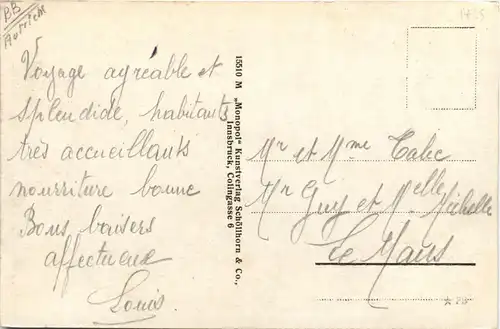 BB
Autriche
Voyage agréable et
splendide, habitants
très accueillants
nourriture bonne
Bons baisers
affectueux
Louis.
15510 M „Monopol" Kunstverlag Schöllhorn & Co.,
Innsbruck, Colingasse 6
Mr et Mme
Mr Guy et Melle Michelle
Le Mans